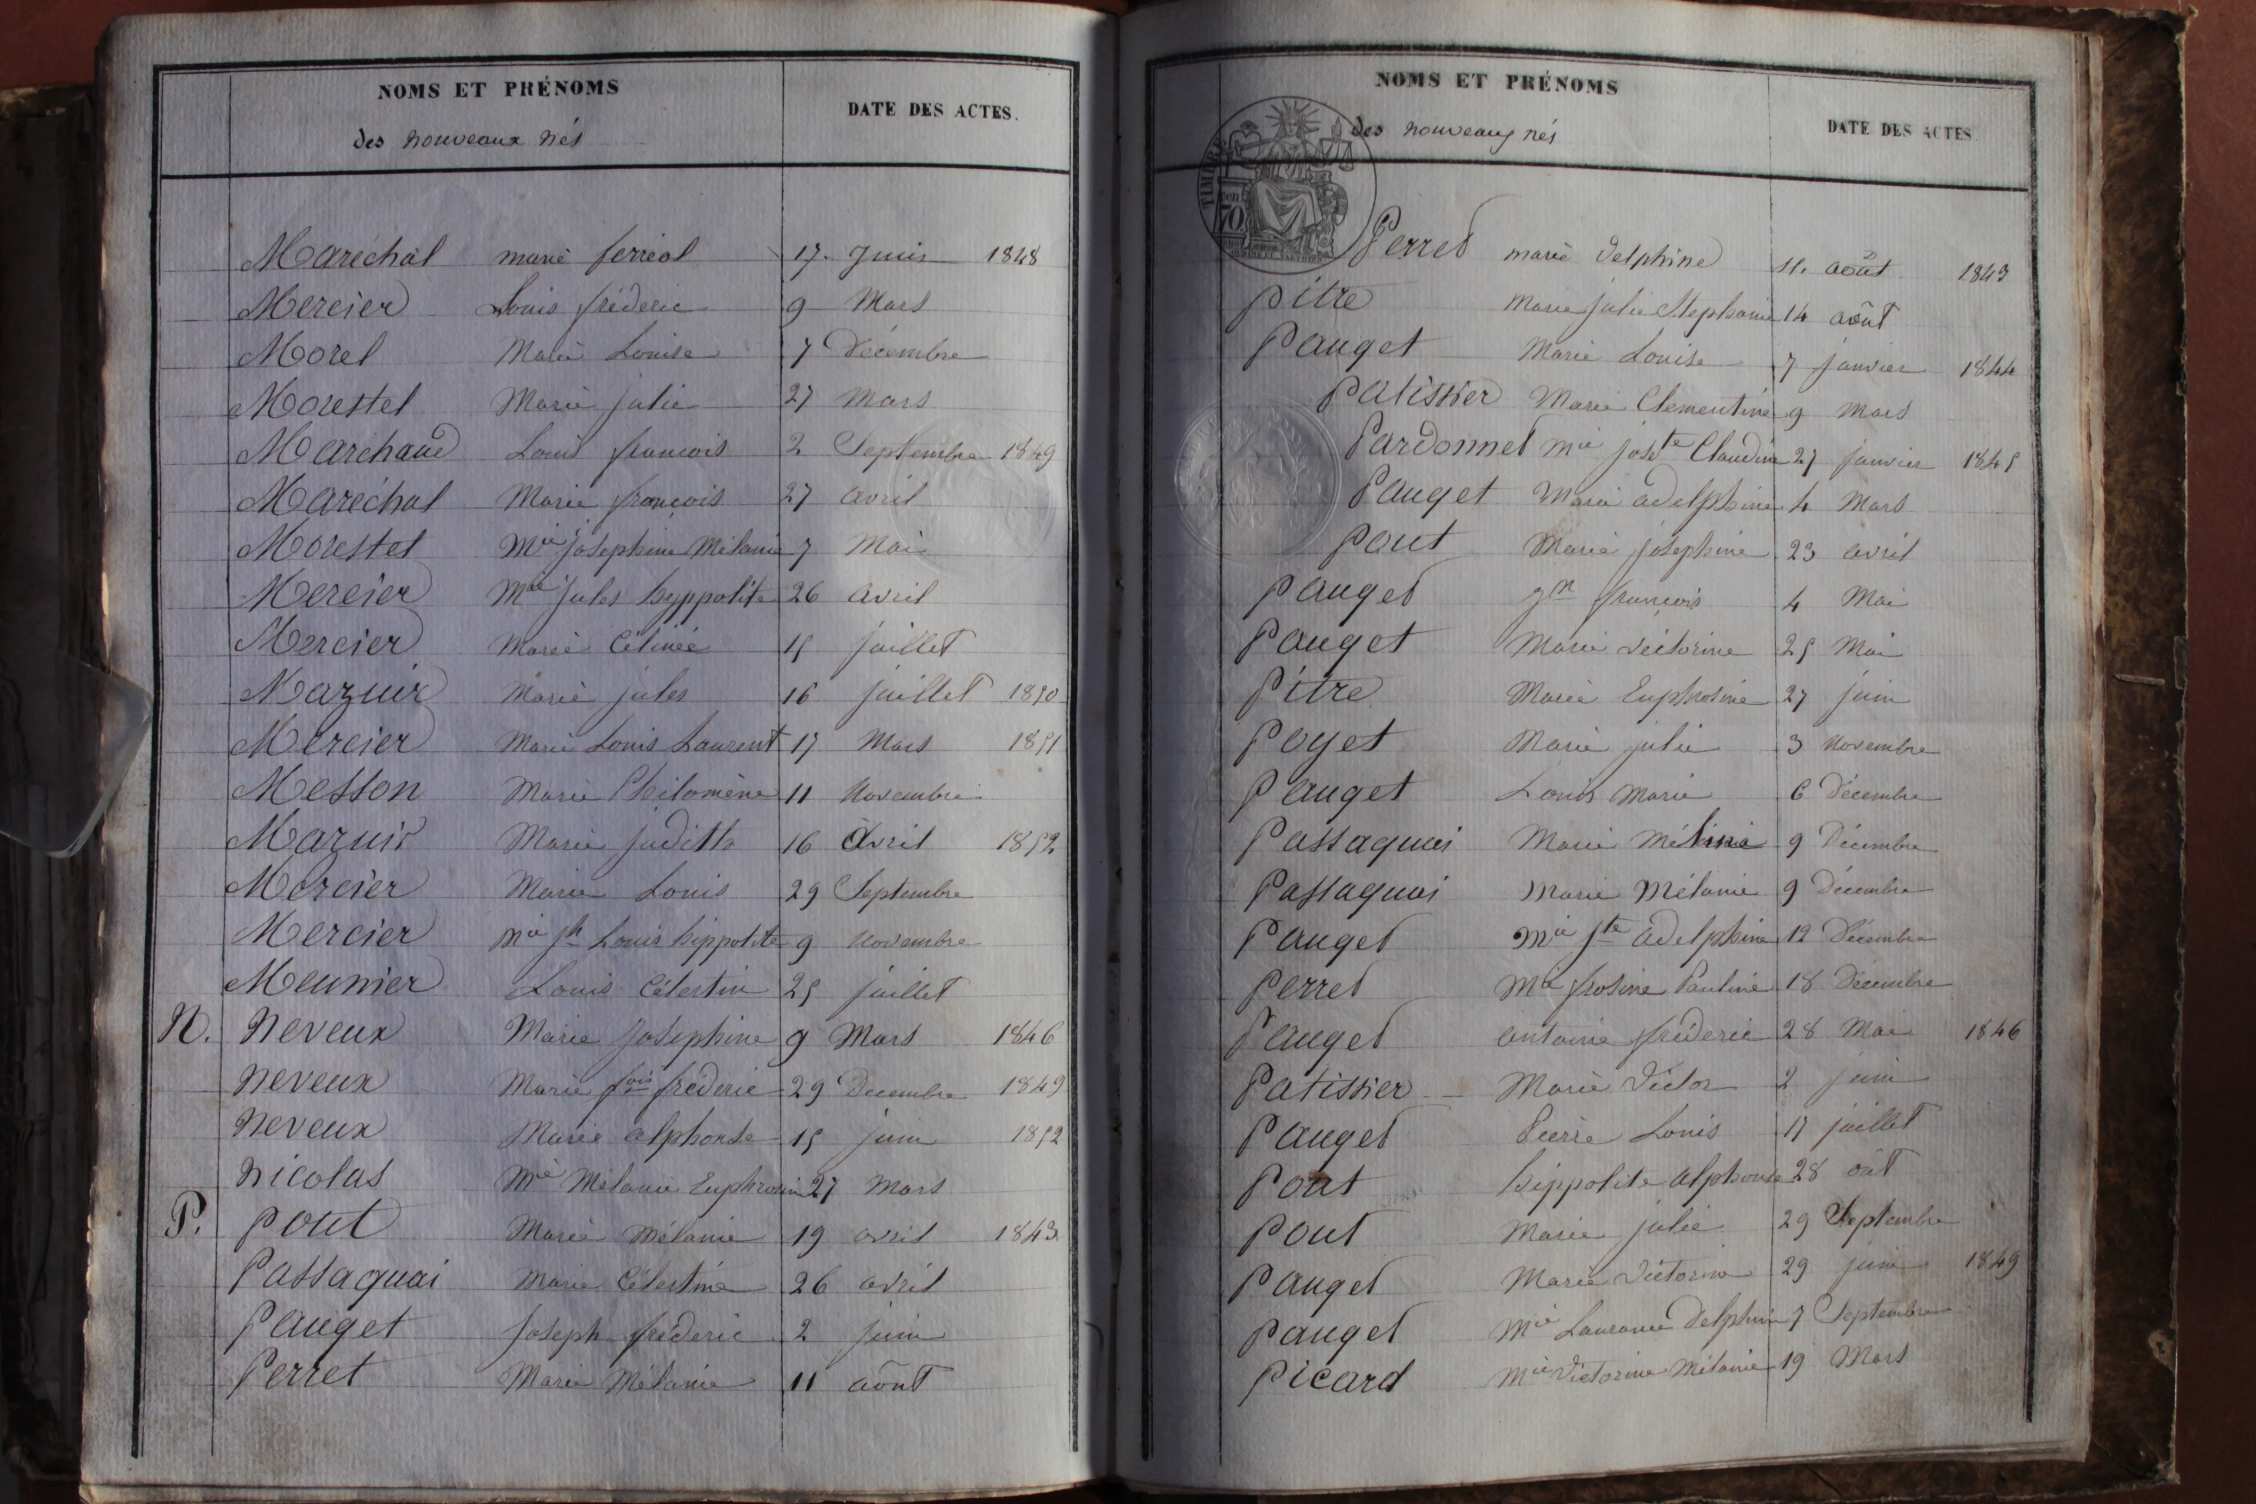 NOMS ET PRÉNOMS
DATE DES ACTES.
des nouveaux nés
Maréchal marie ferréol 17. Juin 1848
Mercier Louis fréderic 9 Mars
Morel Marie Louise 7 Décembre
Morestel Marie julie 27 Mars
Marchand Louis francois 2 Septembre 1849
Maréchal Marie françois 27 avril
Morestel Mie josephine Mélanie 7 Mai
Mercier Mie jules hyppolite 26 avril
Mercier Marie 15 juillet
Mazuir Marie jules 16 juillet 1850
Mercier Marie Louis Laurent 17 Mars 1851
Messon Marie Philomène 11 Novembre
Mazuir Marie judith 16 avril 1852
Mercier Marie Louis 29 Septembre
Mercier Mie jh Louis hippolite 9 Novembre
Meunier Louis Célestin 25 juillet
N. Neveux Marie josephine 9 Mars 1846
Neveux Marie fois fréderic 29 Decembre 1849
Neveux Marie alphonse 15 juin 1852
Nicolas Mie Mélanie Euphrosin 27 Mars
P. Pout Marie Mélanie 19 avril 1843
Passaquai Marie Célestine 26 avril
Pauget Joseph frederic 2 juin
Perret Marie Mélanie 11 août
NOMS ET PRÉNOMS
DATE DES ACTES
des nouveaux nés
TIMBRE
70
Perret marie delphine 11. août 1843
Pitre Marie julie Stephanie 14 août
Pauget Marie Louise 7 janvier 1844
Patissier Marie Clementine 9 Mars
Pardonnet Mie joste Claudine 27 janvier 1845
Pauget Marie adelphine 4 Mars
Pout Marie josephine 23 avril
Pauget Jn françois 4 Mai
Pauget Marie victorine 25 Mai
Pitre Marie Euphrosine 27 juin
Poyet Marie julie 3 Novembre
Pauget Louis Marie 6 Décembre
Passaquai Marie 9 Décembre
Passaquai Marie Mélanie 9 Décembre
Pauget Mie jte adelphine 12 Décembre
Perret Mie frosine Pauline 18 Décembre
Pauget antoine fréderic 28 Mai 1846
Patissier Marie Victor 2 juin
Pauget Pierre Louis 17 juillet
Pout hippolite alphonse 28 oût
Pout Marie julie 29 Septembre
Pauget Marie Victorine 29 juin 1849
Pauget Mie Laurence Delphine 7 Septembre
Picard Mie Victorine Mélanie 19 Mars